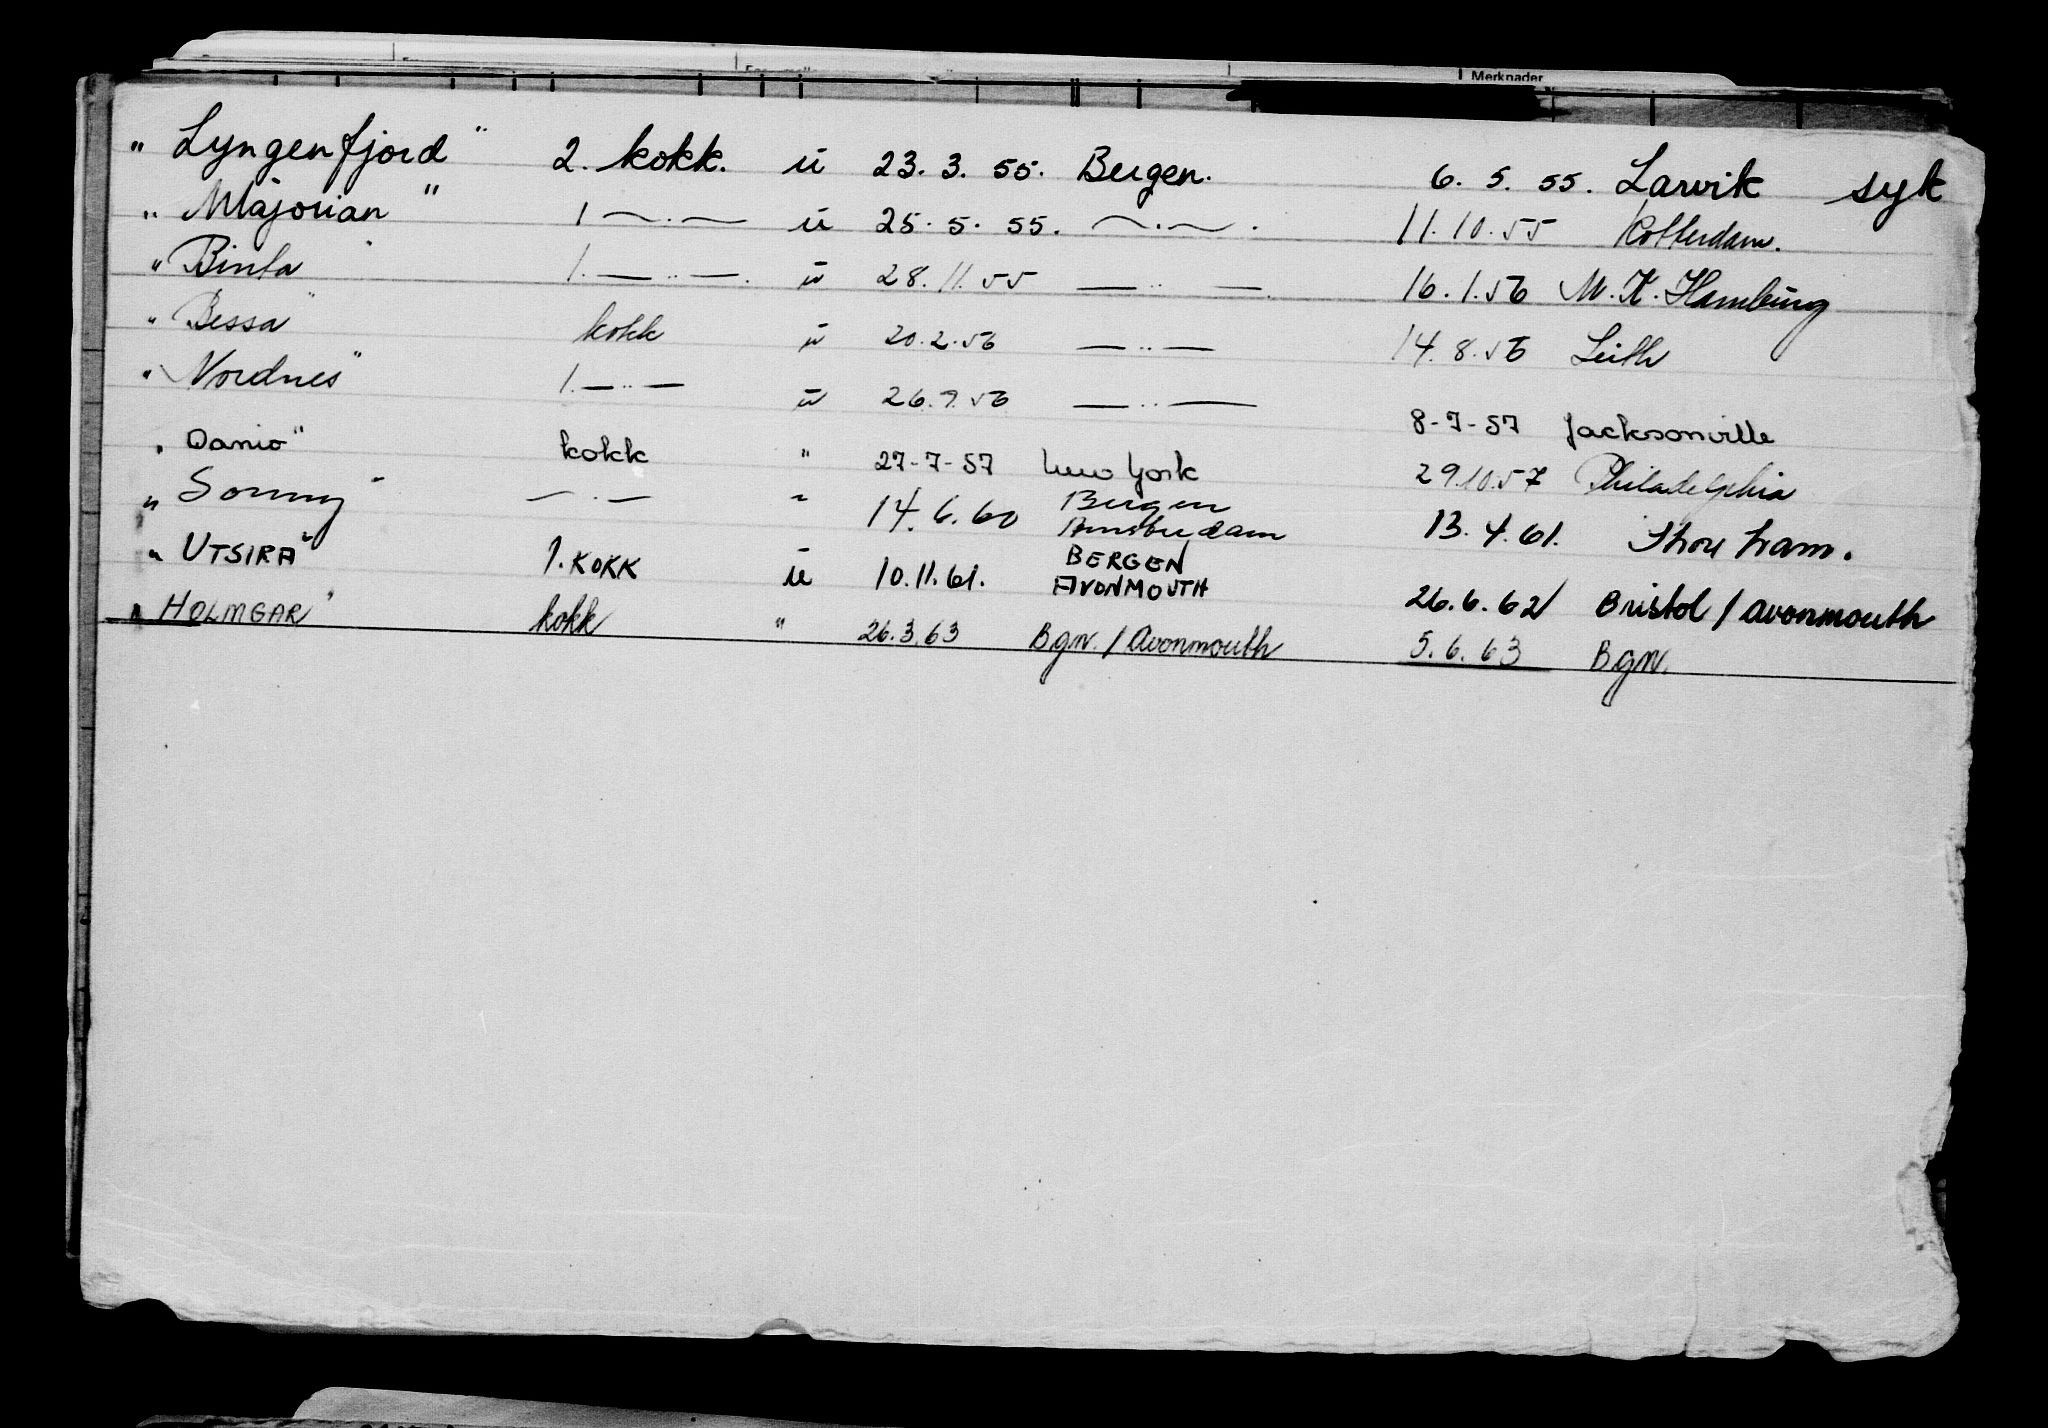 Merknader
"Lyngenfjord" 2. kokk. u 23.3.55. Bergen. 6.5.55. Larvik syk
"Majorian" 1 —·— u 25.5.55. —·—. 11.10.55 Rotterdam.
"Binta" 1. —··—. u 28.11.55 —··—. 16.1.56 M.K. Hamburg
"Bessa" kokk u 20.2.56 —··— 14.8.56 Leith
"Nordnes" 1. —··— u 26.9.56 —··— 8-7-57 Jacksonville
"Danio" kokk " 27-7-57 New York 29.10.57 Philadelphia
"Sonny" —·— " 14.6.60 Bergen Amsterdam 13.4.61. Shoreham.
"UTSIRA" 1. KOKK u 10.11.61. BERGEN AVONMOUTH 26.6.62 Bristol / avonmouth
"HOLMGAR" kokk " 26.3.63 Bgn. / Avonmouth 5.6.63 Bgn.